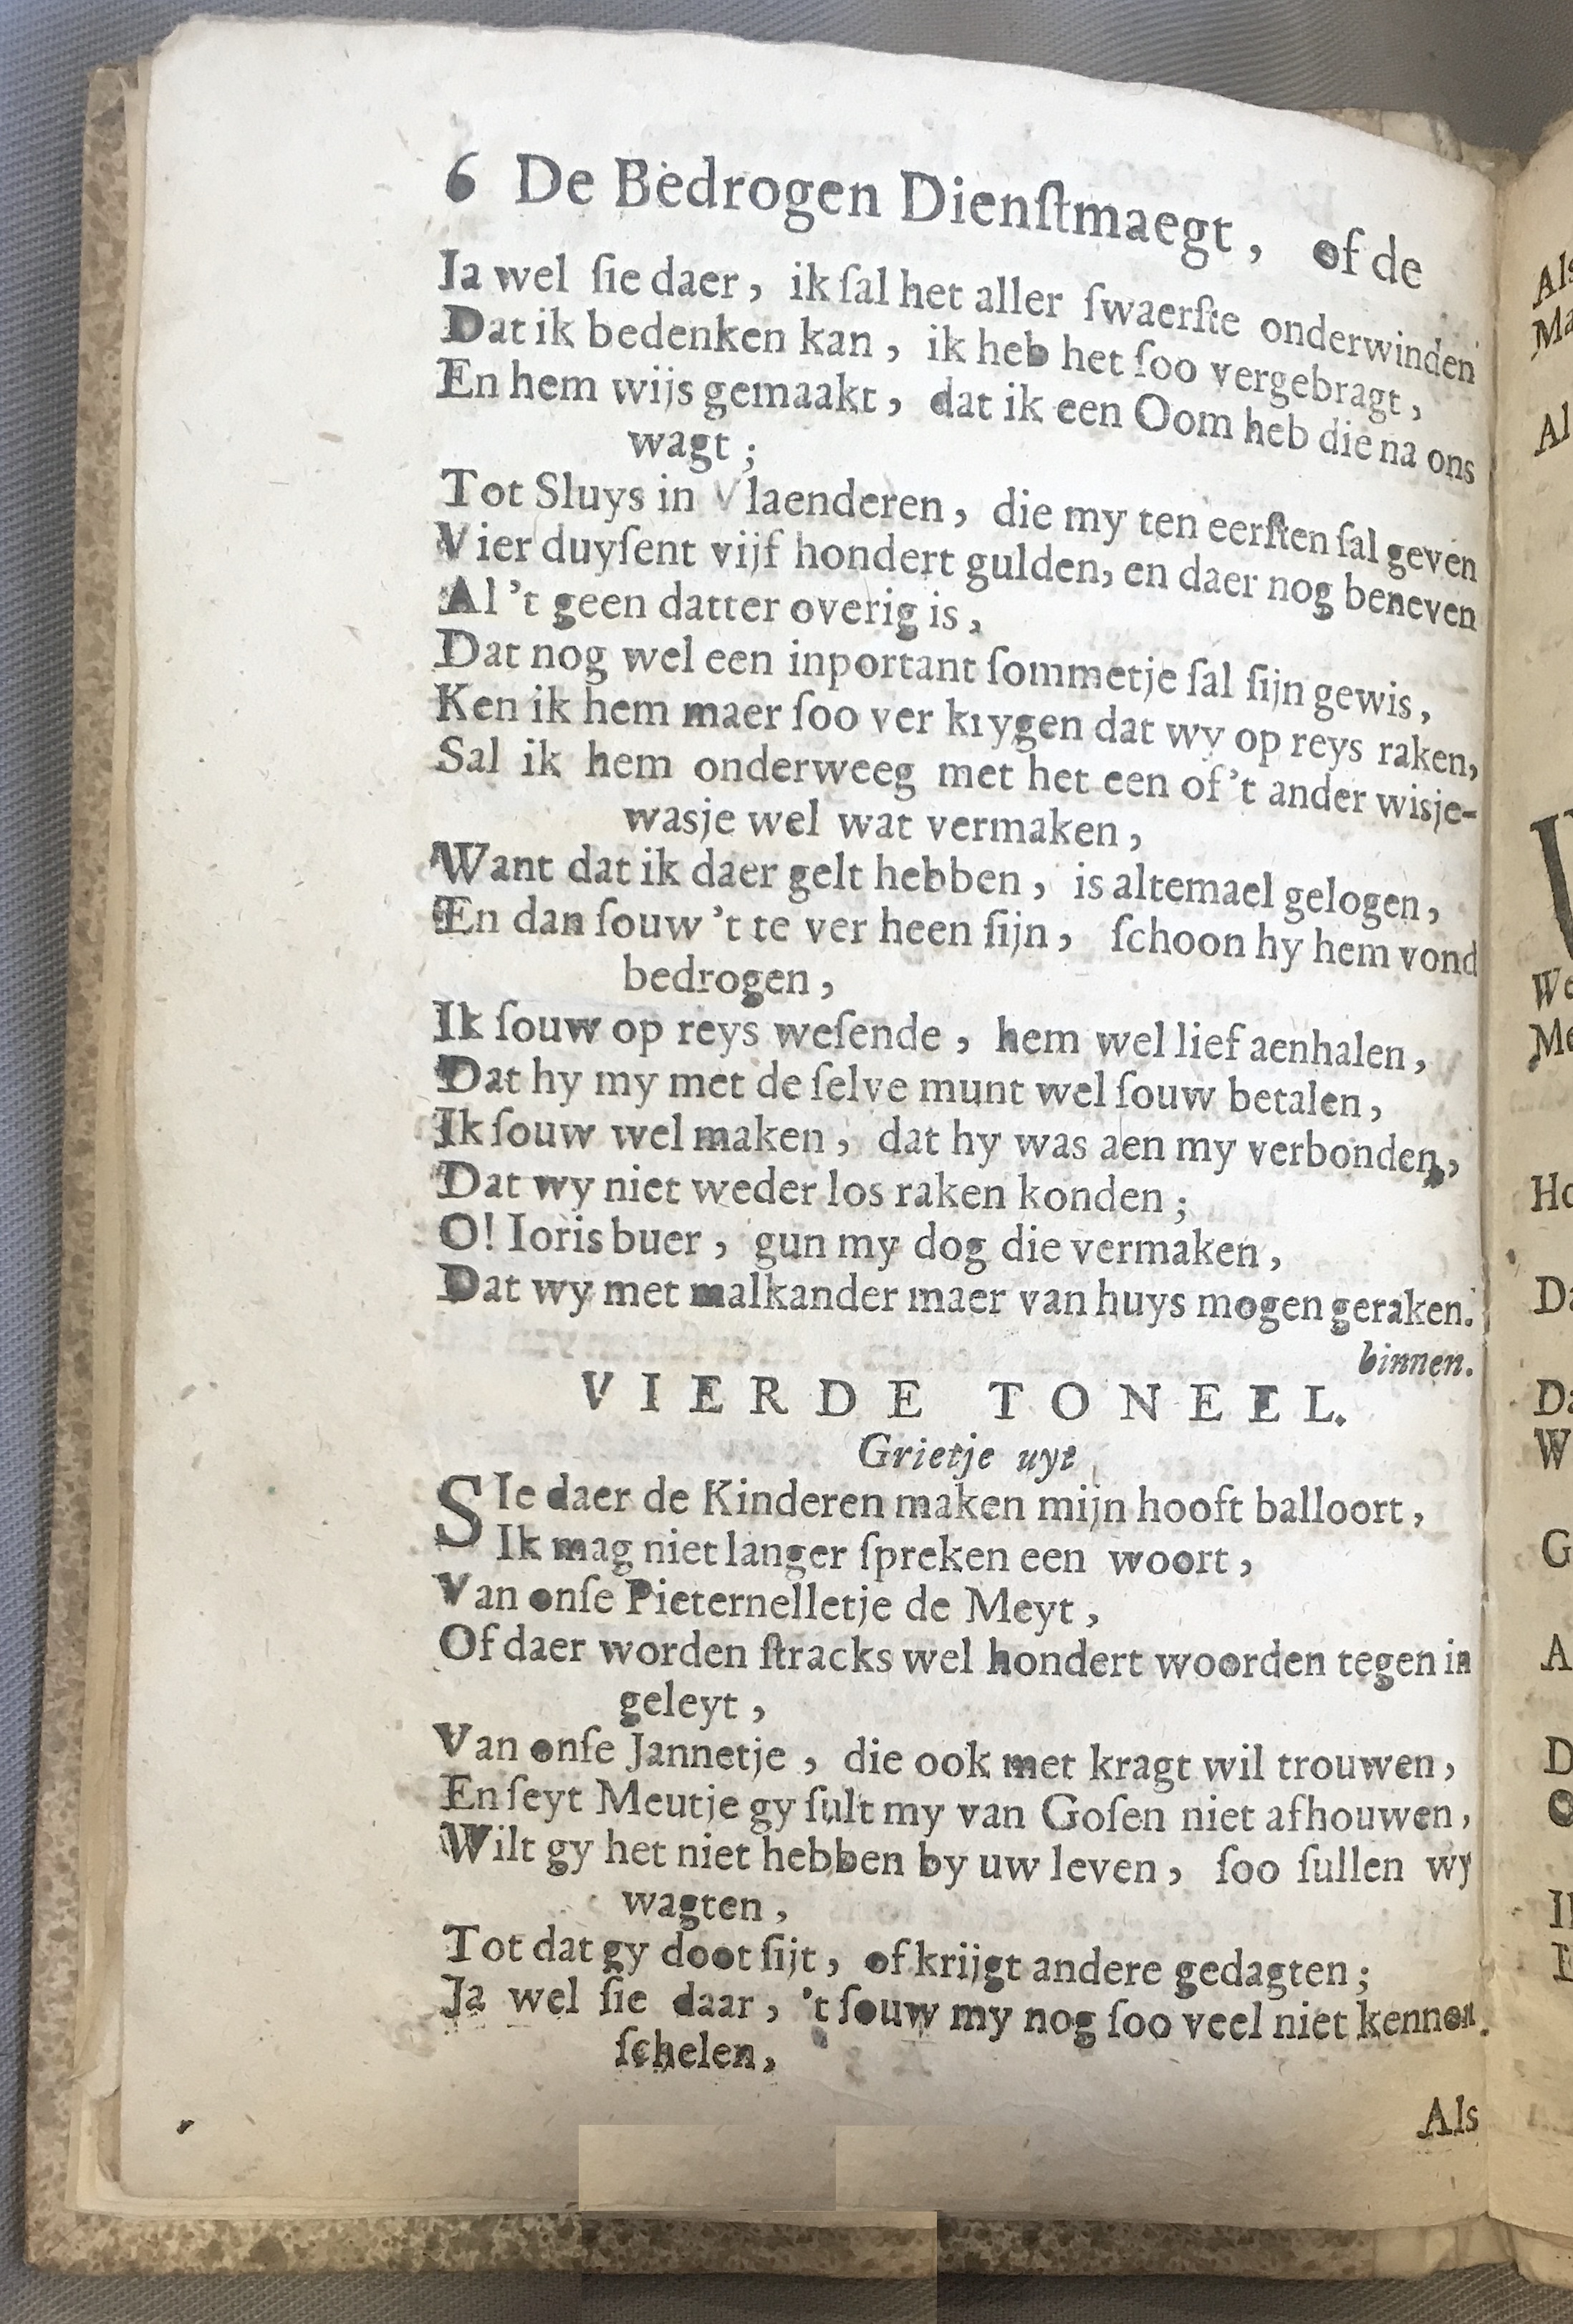 6 De Bedrogen Dienſtmaegt, of de
Ja wel ſie daer, ik ſal het aller ſwaerſte onderwinden
Dat ik bedenken kan, ik heb het ſoo vergebragt,
En hem wijs gemaakt, dat ik een Oom heb die na ons
wagt;
Tot Sluys in Vlaenderen, die my ten eerſten ſal geven
Vier duyſent vijf hondert gulden, en daer nog beneven
Al 't geen datter overig is,
Dat nog wel een inportant ſommetje ſal ſijn gewis,
Ken ik hem maer ſoo ver krygen dat wy op reys raken,
Sal ik hem onderweeg met het een of 't ander wisje-
wasje wel wat vermaken,
Want dat ik daer gelt hebben, is altemael gelogen,
En dan ſouw 't te ver heen ſijn, ſchoon hy hem vond
bedrogen,
Ik ſouw op reys weſende, hem wel lief aenhalen,
Dat hy my met de ſelve munt wel ſouw betalen,
Ik ſouw wel maken, dat hy was aen my verbonden,
Dat wy niet weder los raken konden;
O! Ioris buer, gun my dog die vermaken,
Dat wy met malkander maer van huys mogen geraken.
binnen.
VIERDE TONEEL.
Grietje uyt
SIe daer de Kinderen maken mijn hooft balloort,
Ik mag niet langer ſpreken een woort,
Van onſe Pieternelletje de Meyt,
Of daer worden ſtracks wel hondert woorden tegen in
geleyt,
Van onſe Jannetje, die ook met kragt wil trouwen,
En ſeyt Meutje gy ſult my van Goſen niet afhouwen,
Wilt gy het niet hebben by uw leven, ſoo ſullen wy
wagten,
Tot dat gy doot ſijt, of krijgt andere gedagten;
Ja wel ſie daar, 't ſouw my nog ſoo veel niet kennen
ſchelen,
Als